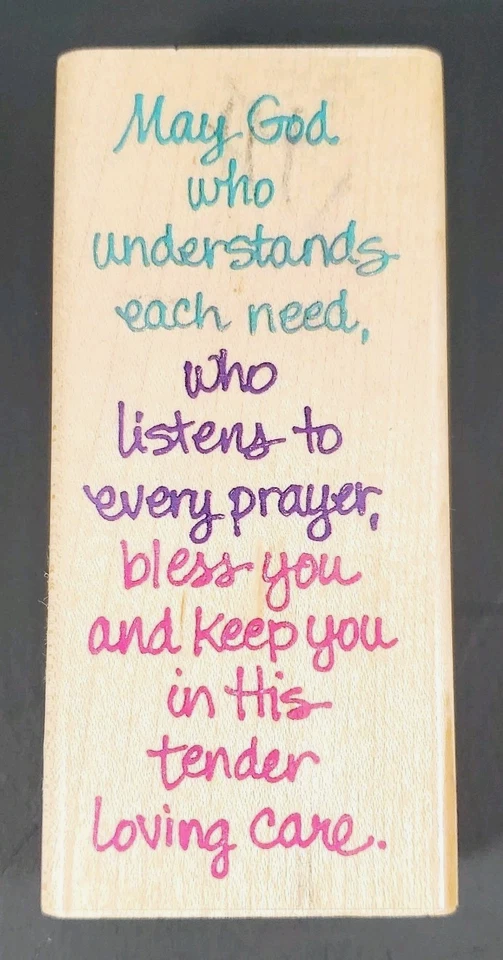 May God
who
understands
each need,
who
listens to
every prayer,
bless you
and keep you
in His
tender
loving care.